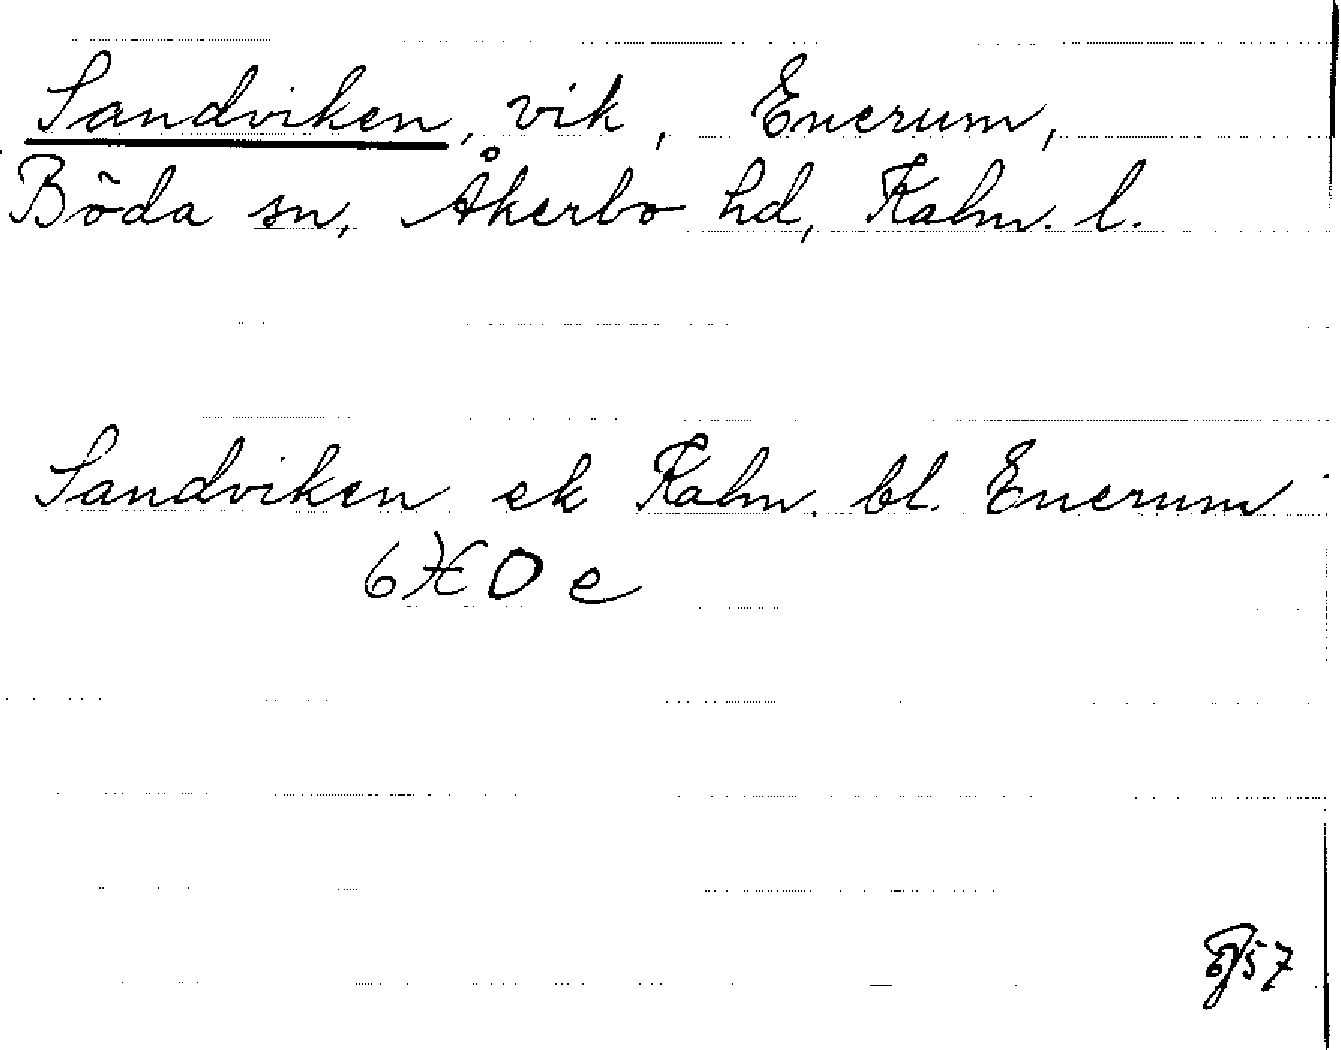 Sandviken, vik, Enerum,
Böda sn, Åkerbo hd, Kalm. l.
Sandviken ek Kalm. bl. Enerum
6 H 0 e
57